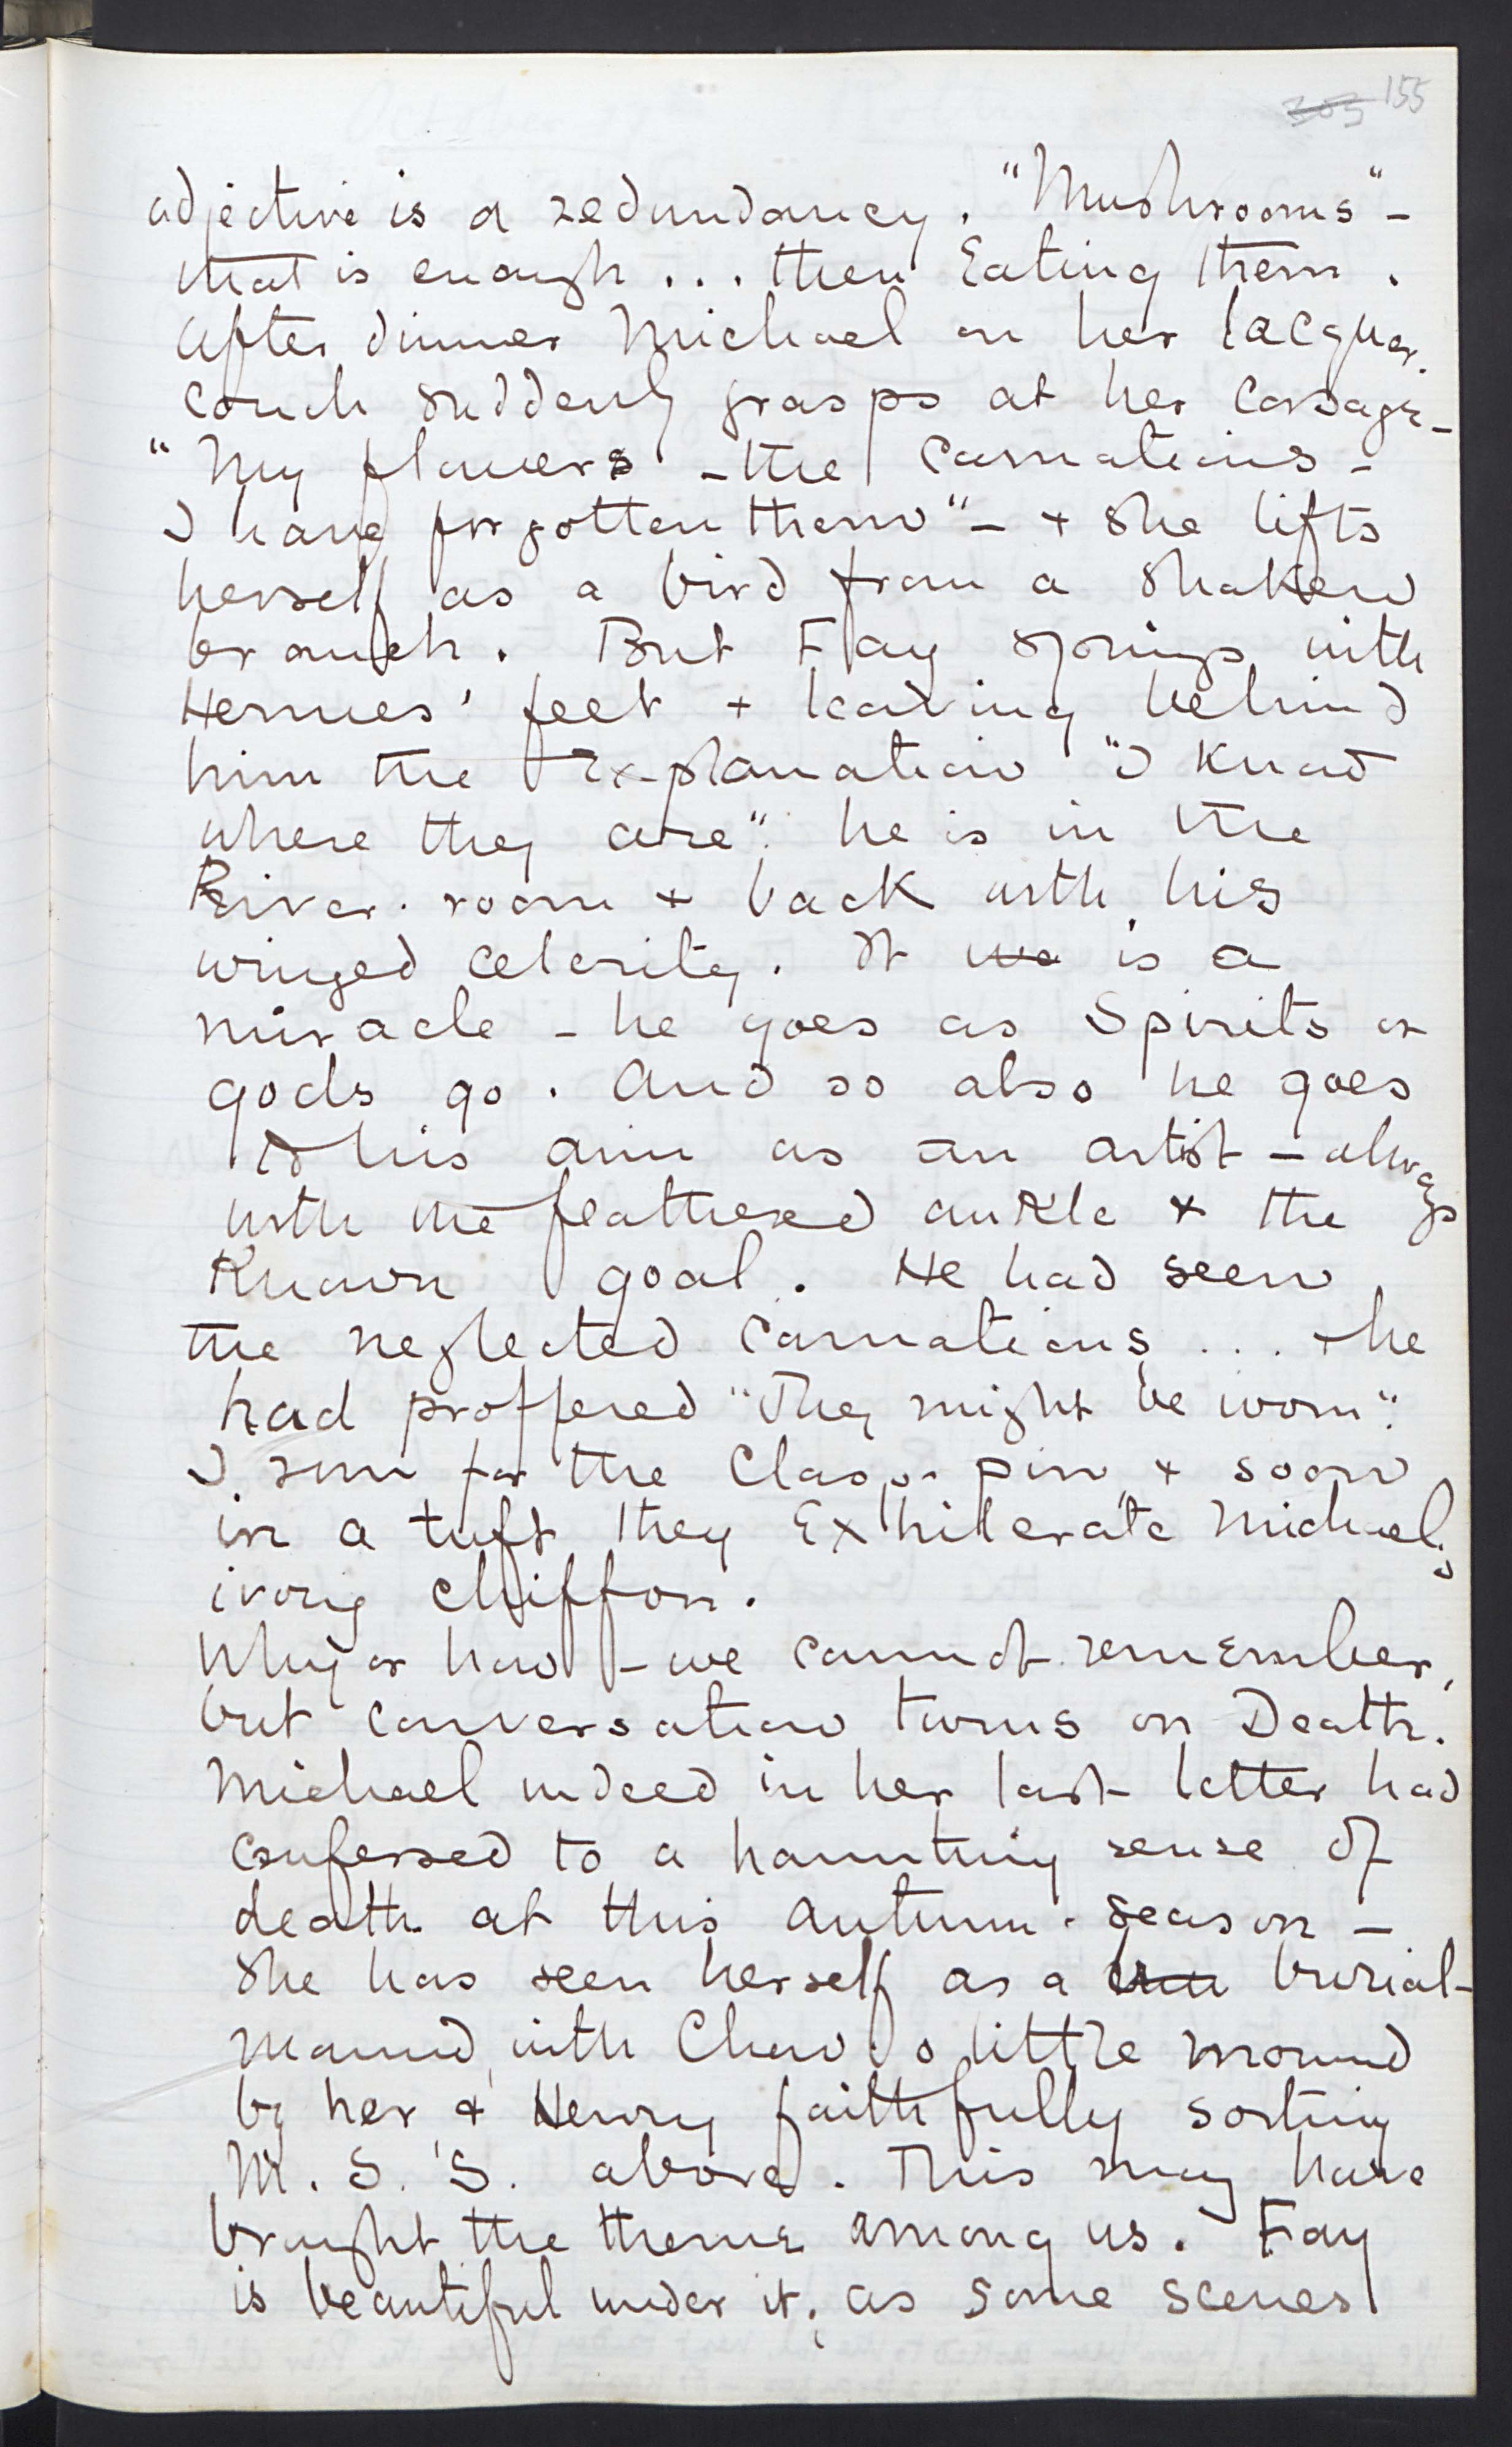 305 155
adjective is a redundancy. "Mushrooms" -
that is enough ... then Eating them.
After dinner Michael on her lacquer.
couch suddenly grasps at her corsage -
"My flowers - the carnations -
I have forgotten them" - + she lifts
herself as a bird from a shaken
branch. But Fay springs with
Hermes' feet + leaving behind
him the Explanation "I know
where they are". he is in the
River. room + back with his
winged celerity. It wa is a
miracle - he goes as Spirits or
gods go. And so also he goes
to his aim as an artist - always
with the feathered ankle + the
Known goal. He had seen
the neglected carnations ... + he
had proffered "They might be worn".
I run for the Clasp. pin + soon
in a tuft they Exhilerate Michael's
ivory chiffon.
Why or how - we cannot remember,
but conversation turns on Death.
Michael indeed in her last letter had
confessed to a haunting sense of
death at this autumn. season -
She has seen herself as a burial-
mound with Chow a little mound
by her + Henry faithfully sorting
M.S.'S. above. This may have
brought the theme among us. Fay
is beautiful under it, as some scenes